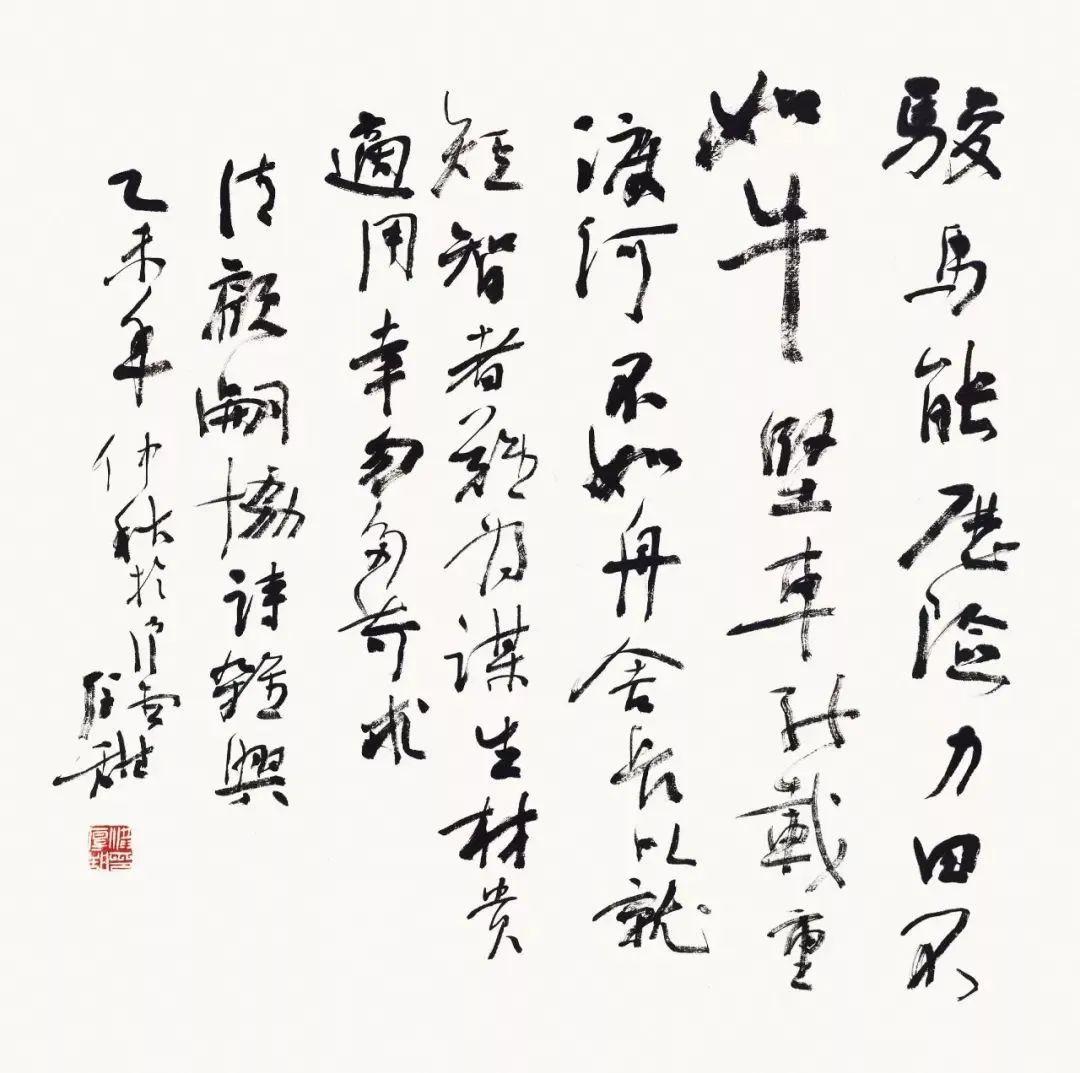 駿馬能歷險力田不
如牛堅車能載重
渡河不如舟舍長以就
短智者難為謀生材貴
適用幸勿多苛求
清顧嗣協詩雜興
乙未年仲秋於